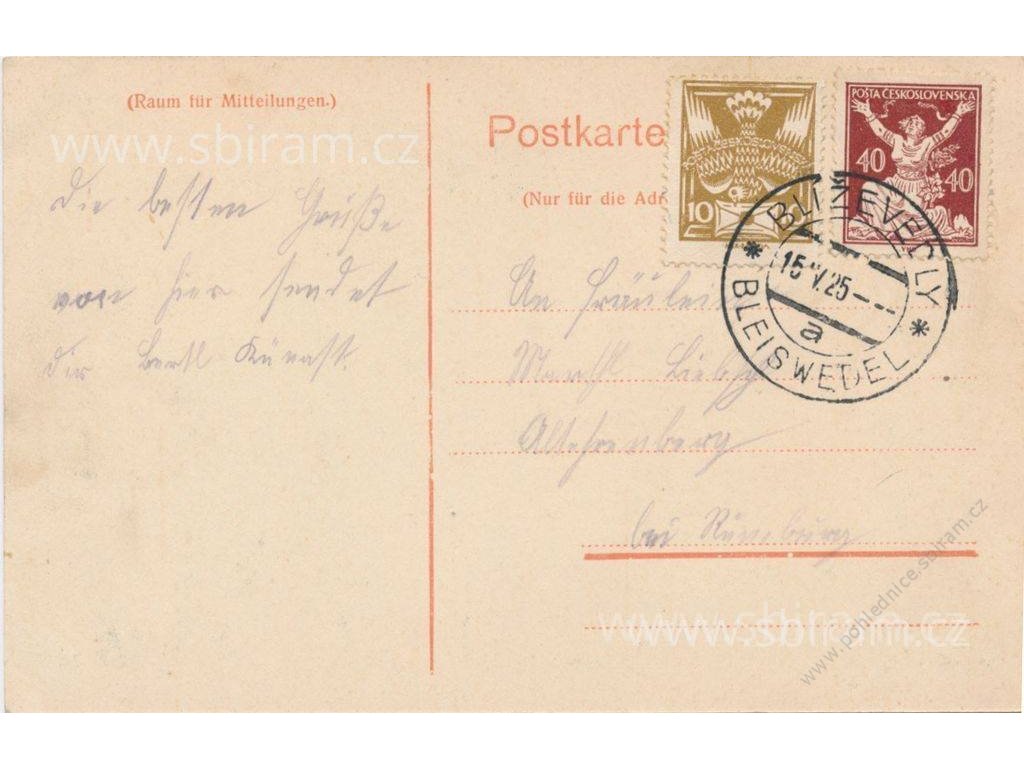 (Raum für Mitteilungen.)
www.sbiram.cz
Die besten Grüße
von hier sendet
dir Bertl Künast.
Postkarte
(Nur für die Adr
ČESKOSLOVENSKO
10
POŠTA ČESKOSLOVENSKA
40 40
BLÍŽEVEDLY
15 V 25
a
* BLEISWEDEL *
An Fräulein
Altehrenberg
bei Rumburg
www.sbiram.cz
www.pohlednice.sbiram.cz